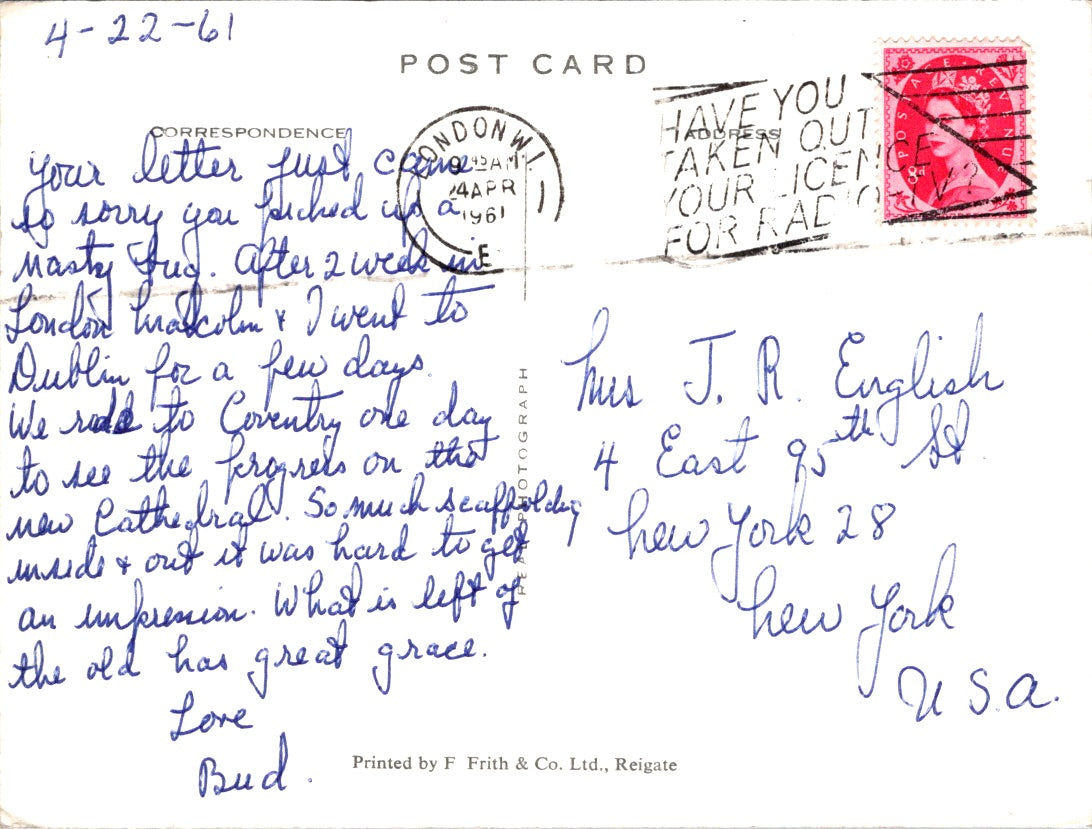 4-22-61
POST CARD
CORRESPONDENCE
ADDRESS
LONDON W.1.
9 45 AM
24 APR
1961
E
HAVE YOU
TAKEN OUT
YOUR LICENCE
FOR RADIO TV?
POSTAGE REVENUE
8d
Your letter just came
so sorry you picked up a
nasty bug. After 2 week in
London Malcolm & I went to
Dublin for a few days.
We rode to Coventry one day
to see the progress on the
new Cathedral. So much scaffolding
inside & out it was hard to get
an impression. What is left of
the old has great grace.
Love
Bud.
REAL PHOTOGRAPH
Mrs J. R. English
4 East 95th St
New York 28
New York
U.S.A.
Printed by F Frith & Co. Ltd., Reigate